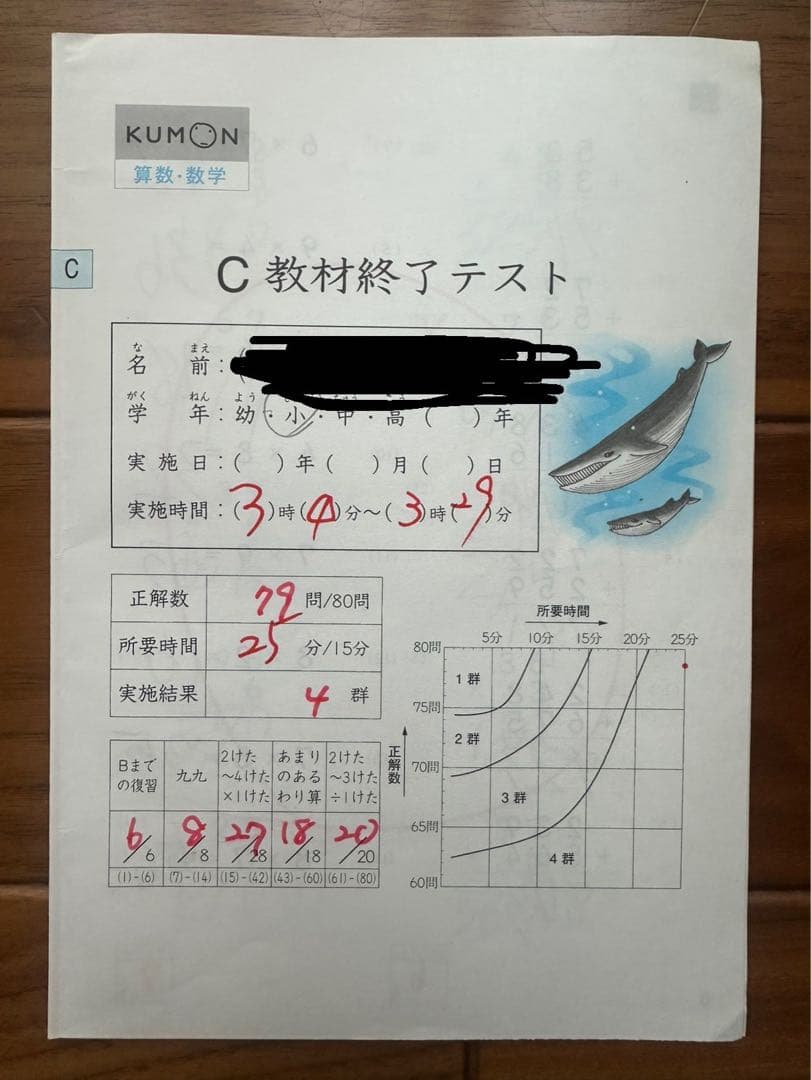 KUMON
算数・数学
C
C 教材終了テスト
な まえ
名 前：(
がく ねん よう
学 年：幼・小・中・高( )年
実施日：( )年( )月( )日
実施時間：(3)時(4)分～(3)時(29)分
正解数 79 問/80問
所要時間 25 分/15分
実施結果 4 群
所要時間
5分 10分 15分 20分 25分
80問
75問
70問
65問
60問
正解数
1群
2群
3群
4群
Bまでの復習 九九 2けた～4けた×1けた あまりのあるわり算 2けた～3けた÷1けた
6/6 8/8 27/28 18/18 20/20
(1)-(6) (7)-(14) (15)-(42) (43)-(60) (61)-(80)